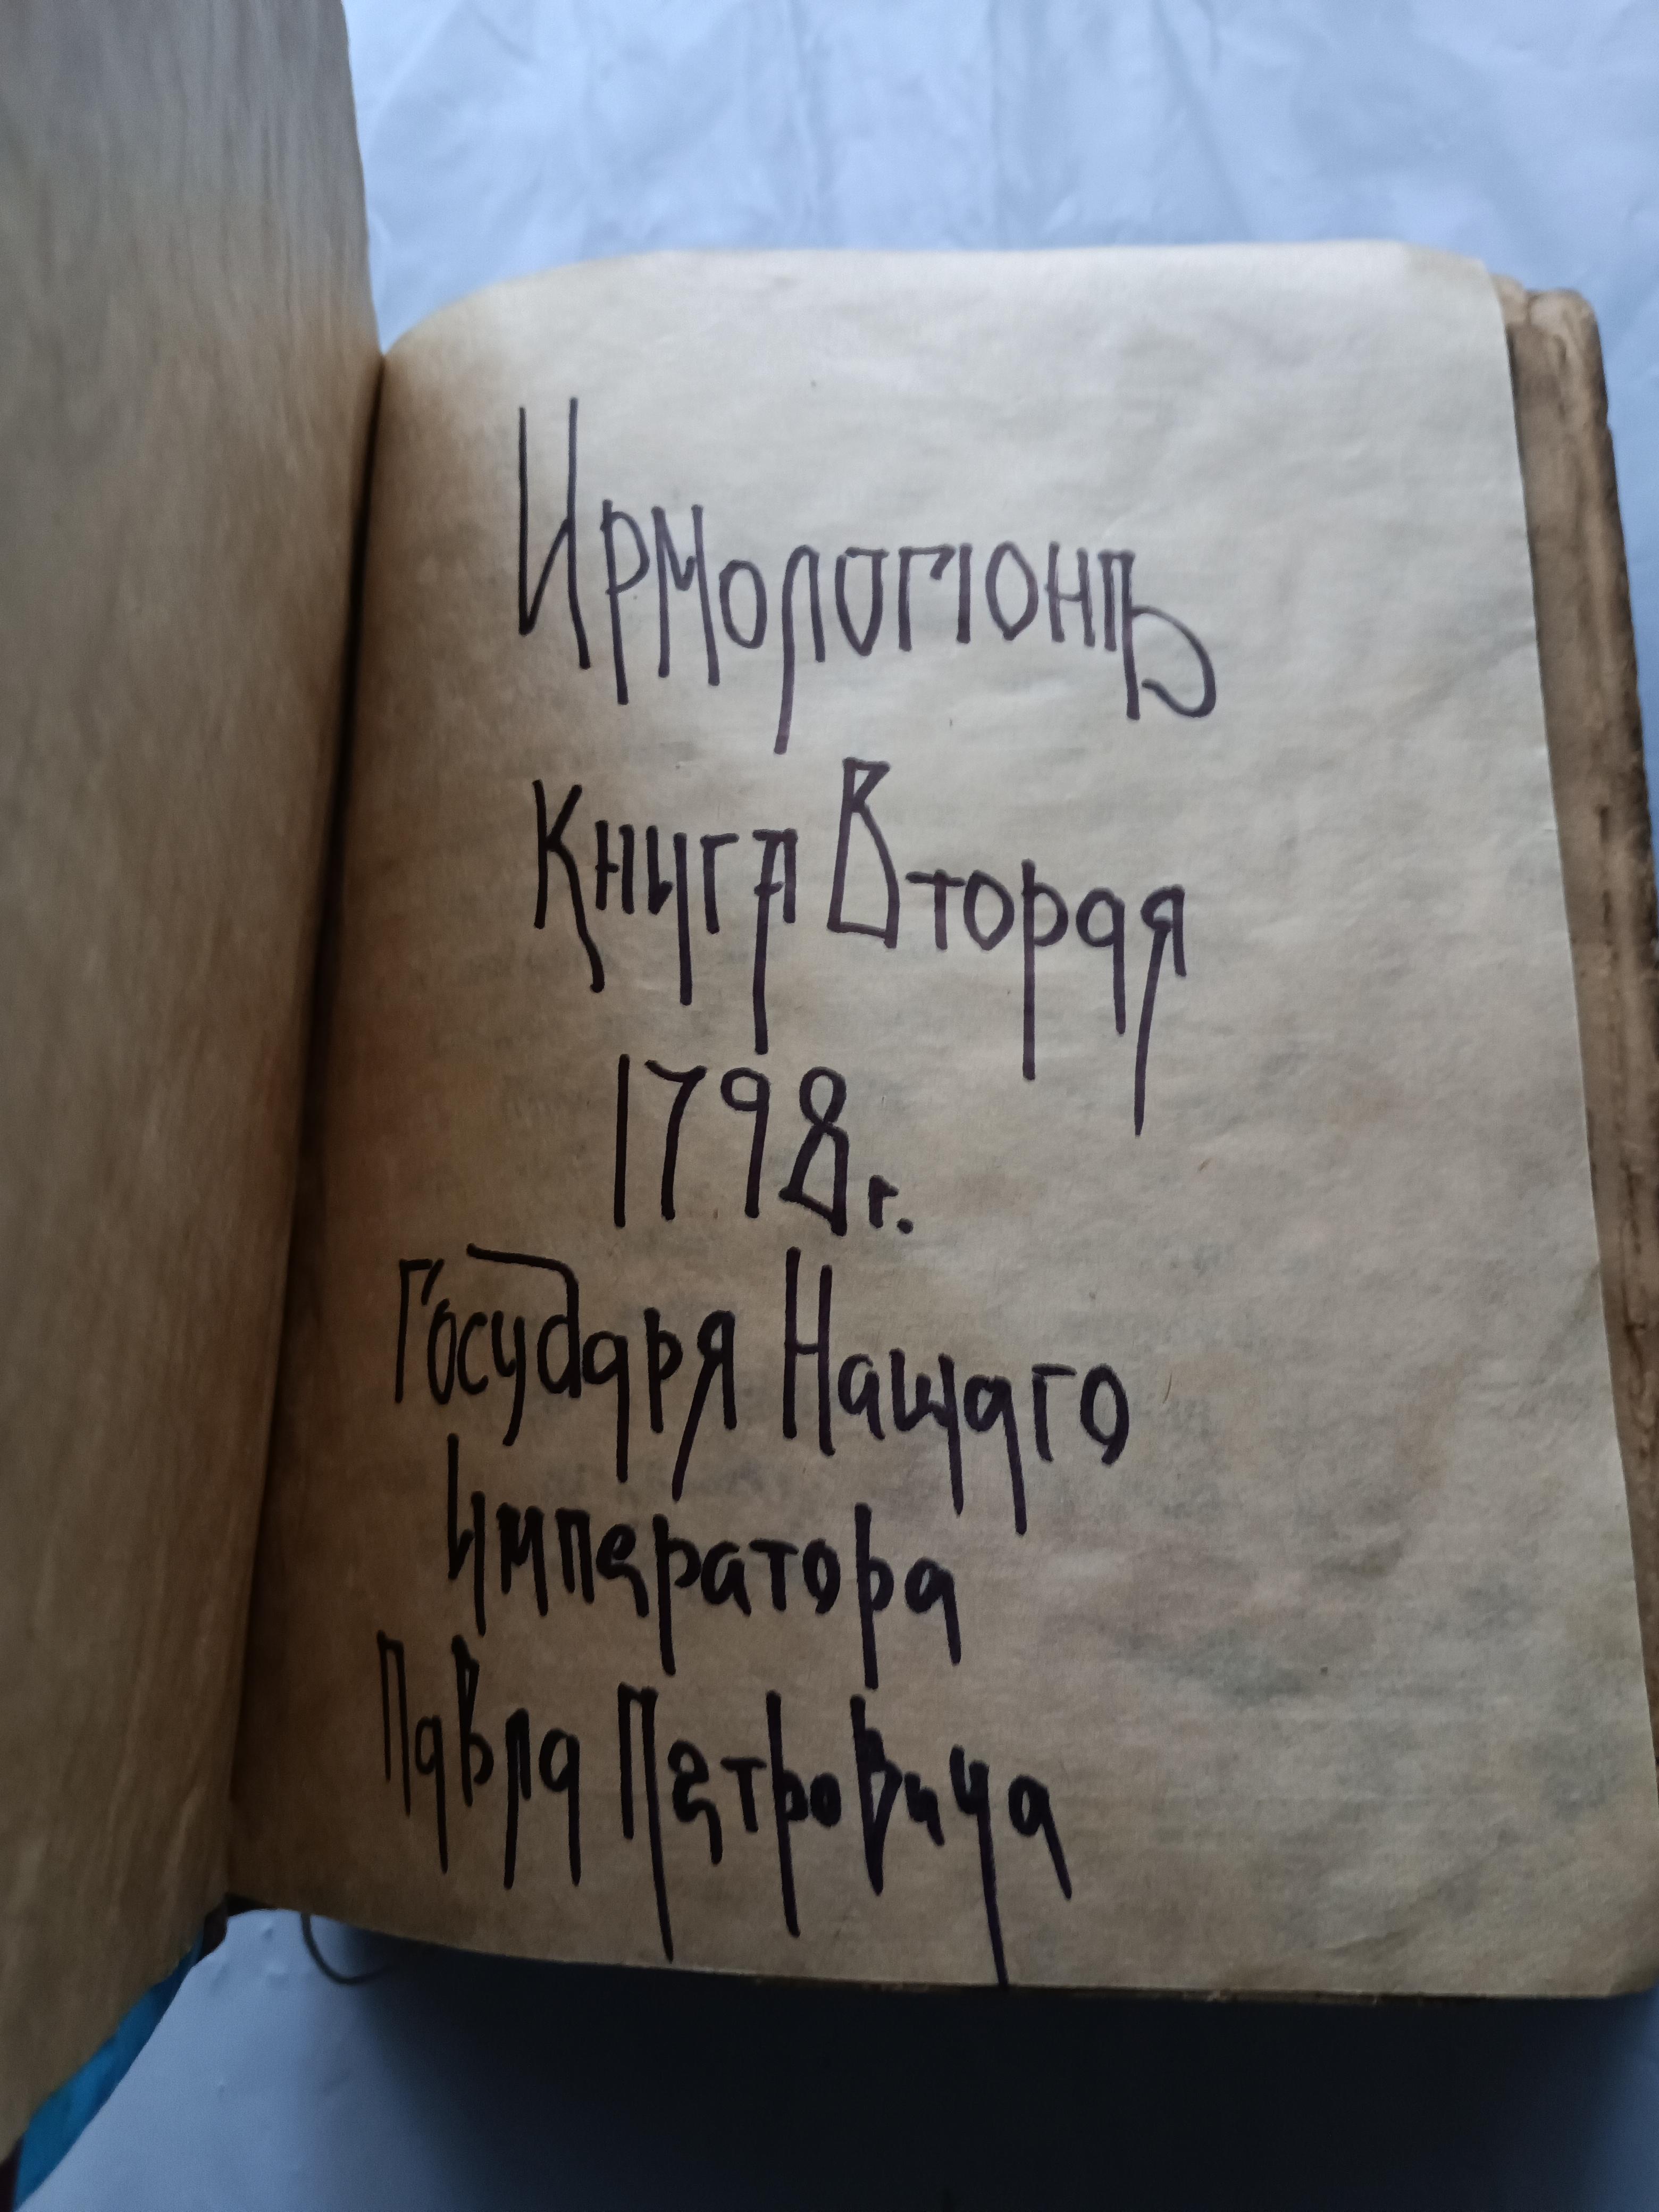 Ирмологіонъ
Книга Вторая
1798 г.
Государя Нашаго
Императора
Павла Петровича